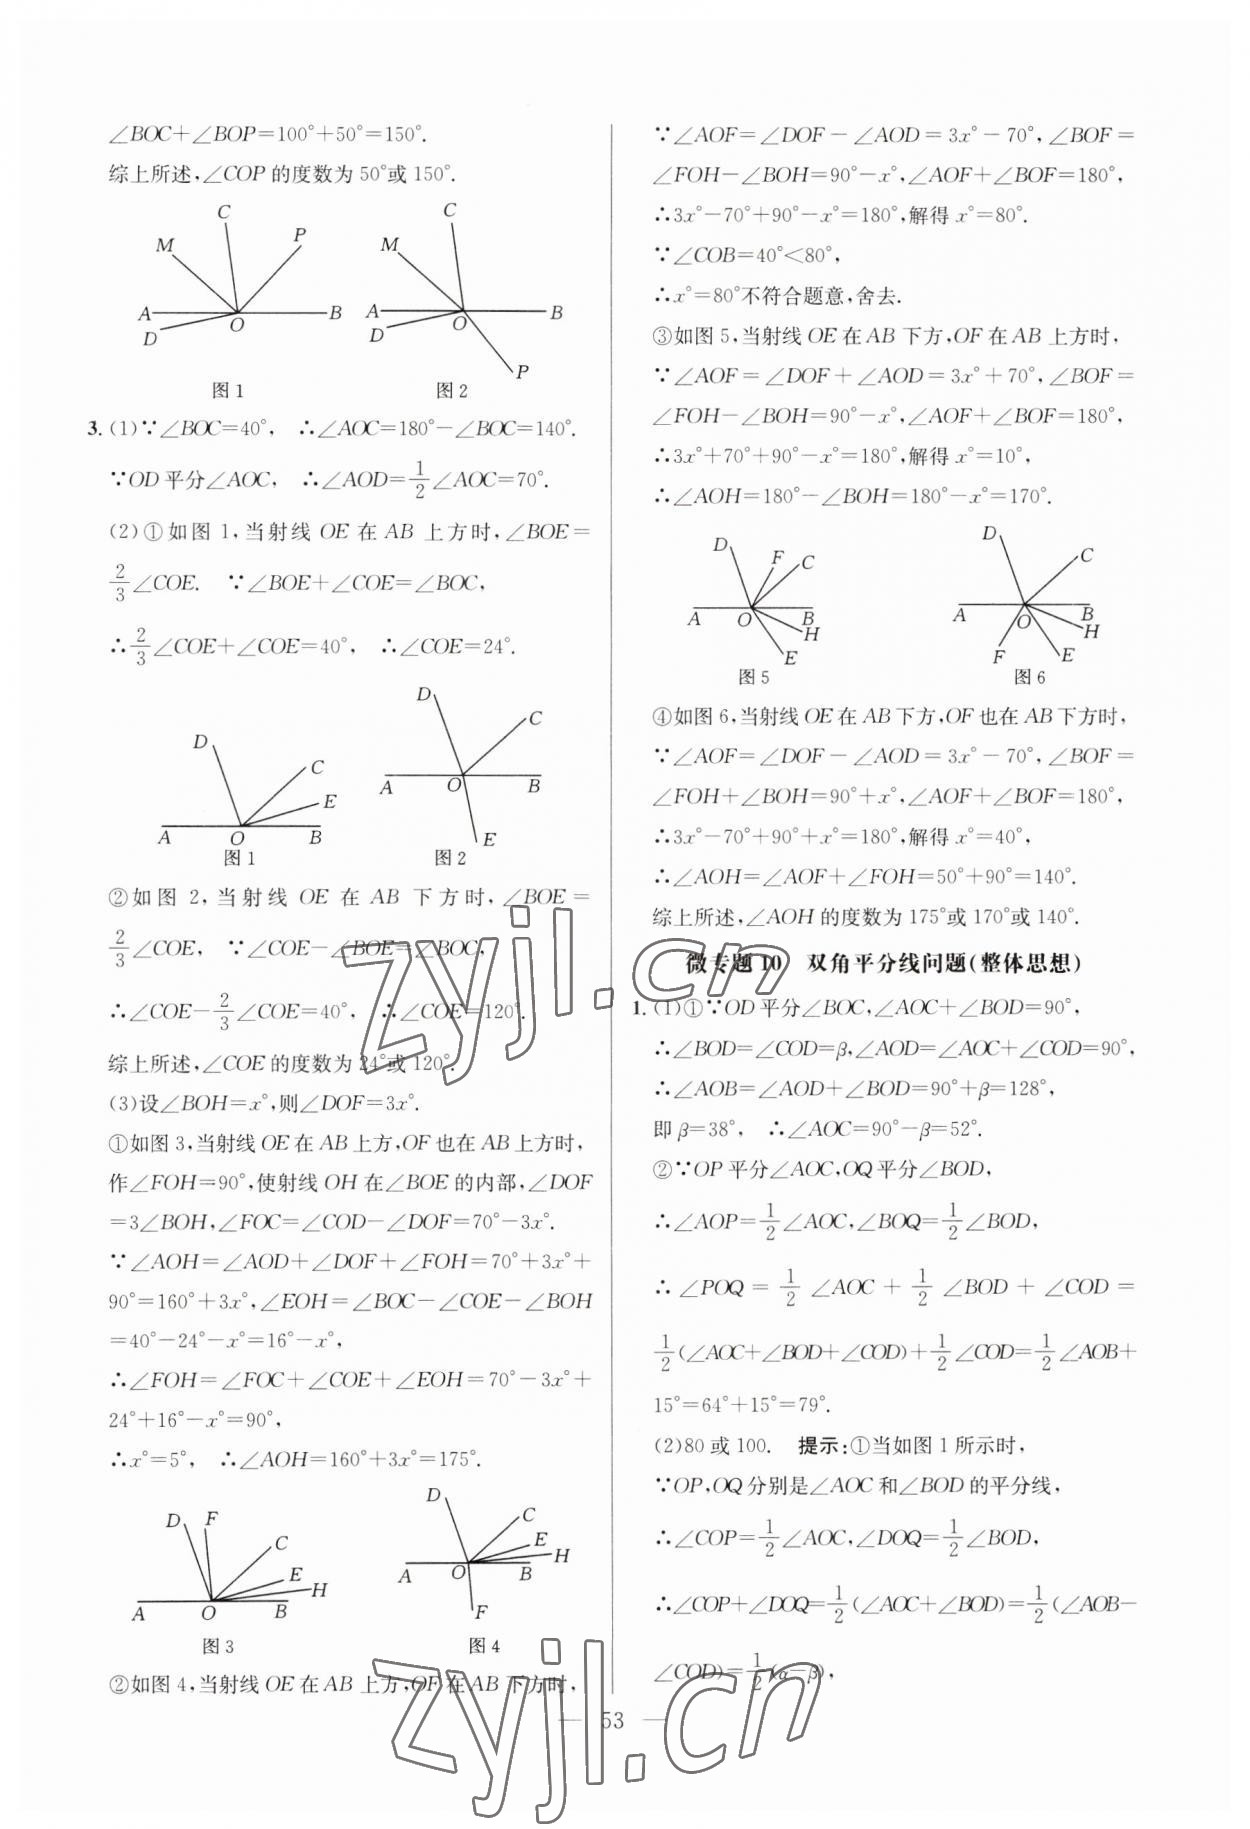 ∠BOC+∠BOP=100°+50°=150°.
综上所述,∠COP的度数为50°或150°.
C
M
P
A
O
B
D
图1
C
M
A
O
B
D
P
图2
3. (1)∵∠BOC=40°, ∴∠AOC=180°-∠BOC=140°.
∵OD平分∠AOC, ∴∠AOD=1/2∠AOC=70°.
(2)①如图1,当射线OE在AB上方时,∠BOE=
2/3∠COE. ∵∠BOE+∠COE=∠BOC,
∴2/3∠COE+∠COE=40°, ∴∠COE=24°.
D
C
E
A
O
B
图1
D
C
A
O
B
E
图2
②如图2,当射线OE在AB下方时,∠BOE=
2/3∠COE, ∵∠COE-∠BOE=∠BOC,
∴∠COE-2/3∠COE=40°, ∴∠COE=120°.
综上所述,∠COE的度数为24°或120°.
(3)设∠BOH=x°,则∠DOF=3x°.
①如图3,当射线OE在AB上方,OF也在AB上方时,
作∠FOH=90°,使射线OH在∠BOE的内部,∠DOF
=3∠BOH,∠FOC=∠COD-∠DOF=70°-3x°.
∵∠AOH=∠AOD+∠DOF+∠FOH=70°+3x°+
90°=160°+3x°,∠EOH=∠BOC-∠COE-∠BOH
=40°-24°-x°=16°-x°,
∴∠FOH=∠FOC+∠COE+∠EOH=70°-3x°+
24°+16°-x°=90°,
∴x°=5°, ∴∠AOH=160°+3x°=175°.
D
F
C
E
H
A
O
B
图3
D
C
E
H
A
O
B
F
图4
②如图4,当射线OE在AB上方,OF在AB下方时,
∵∠AOF=∠DOF-∠AOD=3x°-70°,∠BOF=
∠FOH-∠BOH=90°-x°,∠AOF+∠BOF=180°,
∴3x°-70°+90°-x°=180°,解得x°=80°.
∵∠COB=40°<80°,
∴x°=80°不符合题意,舍去.
③如图5,当射线OE在AB下方,OF在AB上方时,
∵∠AOF=∠DOF+∠AOD=3x°+70°,∠BOF=
∠FOH-∠BOH=90°-x°,∠AOF+∠BOF=180°,
∴3x°+70°+90°-x°=180°,解得x°=10°,
∴∠AOH=180°-∠BOH=180°-x°=170°.
D
F
C
A
O
B
H
E
图5
D
C
A
O
B
H
F
E
图6
④如图6,当射线OE在AB下方,OF也在AB下方时,
∵∠AOF=∠DOF-∠AOD=3x°-70°,∠BOF=
∠FOH+∠BOH=90°+x°,∠AOF+∠BOF=180°,
∴3x°-70°+90°+x°=180°,解得x°=40°,
∴∠AOH=∠AOF+∠FOH=50°+90°=140°.
综上所述,∠AOH的度数为175°或170°或140°.
微专题10 双角平分线问题(整体思想)
1. (1)①∵OD平分∠BOC,∠AOC+∠BOD=90°,
∴∠BOD=∠COD=β,∠AOD=∠AOC+∠COD=90°,
∴∠AOB=∠AOD+∠BOD=90°+β=128°,
即β=38°, ∴∠AOC=90°-β=52°.
②∵OP平分∠AOC,OQ平分∠BOD,
∴∠AOP=1/2∠AOC,∠BOQ=1/2∠BOD,
∴∠POQ=1/2∠AOC+1/2∠BOD+∠COD=
1/2(∠AOC+∠BOD+∠COD)+1/2∠COD=1/2∠AOB+
15°=64°+15°=79°.
(2)80或100. 提示:①当如图1所示时,
∵OP,OQ分别是∠AOC和∠BOD的平分线,
∴∠COP=1/2∠AOC,∠DOQ=1/2∠BOD,
∴∠COP+∠DOQ=1/2(∠AOC+∠BOD)=1/2(∠AOB-
∠COD)=1/2(α-β),
53
zyjl.cn
zyjl.cn